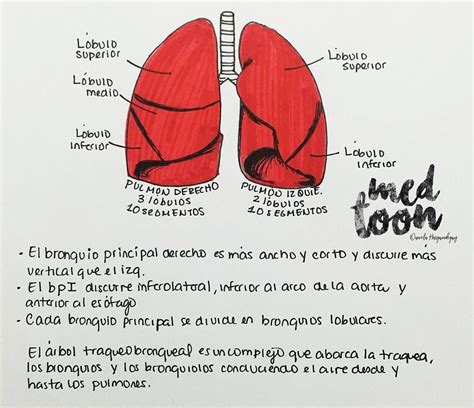 Lóbulo superior
Lóbulo medio
Lóbulo inferior
Lóbulo superior
Lóbulo inferior
PULMÓN DERECHO
3 lóbulos
10 SEGMENTOS
PULMÓN IZQUIE.
2 lóbulos
10 SEGMENTOS
med
toon
- El bronquio principal derecho es más ancho y corto y discurre más
vertical que el izq.
- El bpI discurre inferolatoral, inferior al arco de la aorta y
anterior al esófago
- Cada bronquio principal se divide en bronquios lobulares.
El árbol traqueobronqueal es un complejo que abarca la traquea,
los bronquios y los bronquiolos conduciendo el aire desde y
hasta los pulmones.